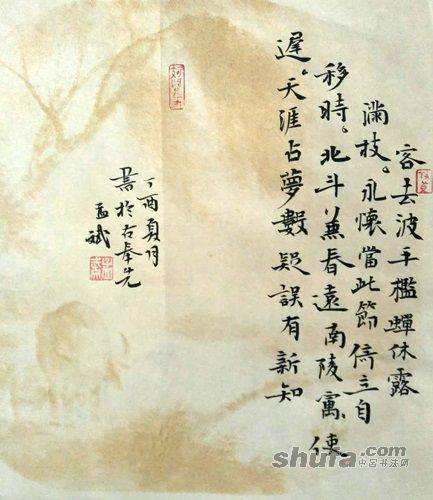 客去波平檻蟬休露
滿枝。永懷當此節倚立自
移時。北斗兼春遠南陵寓使
遲。天涯占夢數疑誤有新知
丁酉夏月
書於古奉先
孟斌
shufa.com
中国书法网